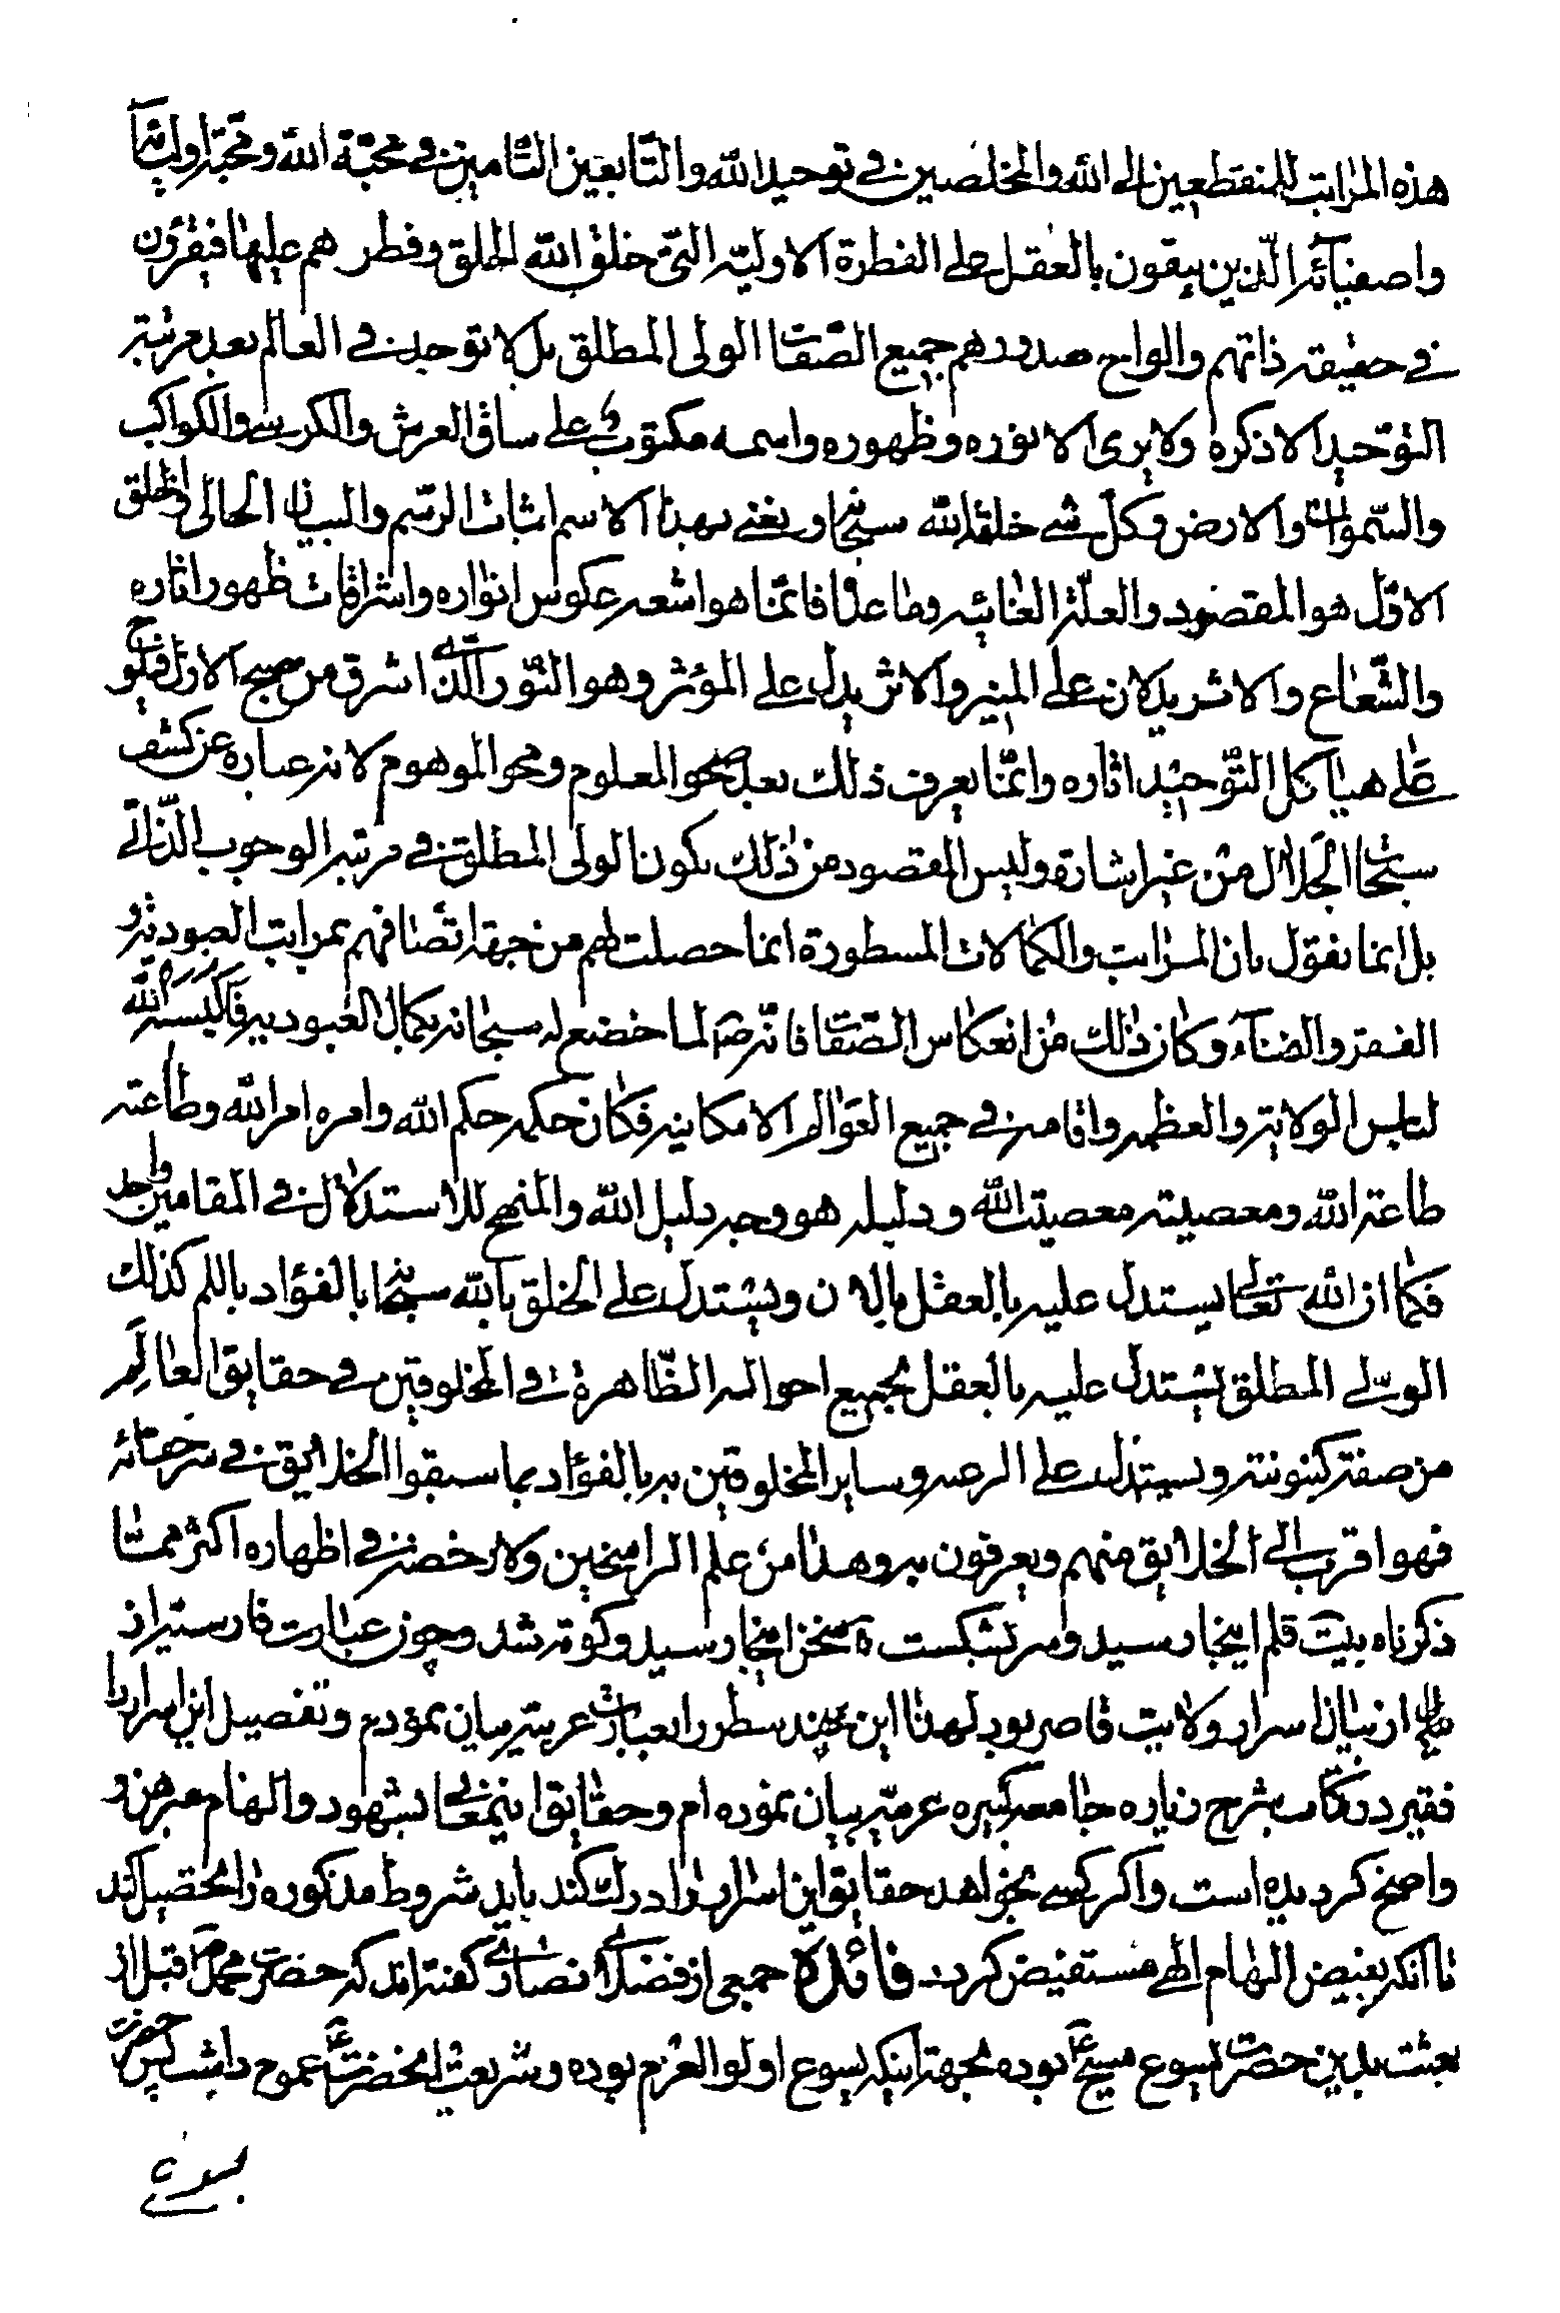 هذه المراتب للمنقطعين الى الله والمخلصين فى توحيد الله والتّابعين التّامين فى محبّة الله ومحبّة اوليائه
واصفيائه الّذين يبقون بالعقل على الفطرة الاوليّة التى خلق الله الخلق وفطرهم عليها فيقرؤن
فى حقيقة ذاتهم والواح صدورهم جميع الصّفات الولى المطلق بل لا توجد فى العالم بعد مرتبة
التوّحيد الا ذكره ولا يرى الا نوره وظهوره واسمه مكتوب على ساق العرش والكرسى والكواكب
والسّموات والارض وكلّ شى خلقه الله سبحانه ونعنى بهذا الاسم اثبات الرّسم والبيان الحالى والخلق
الاوّل هو المقصود والعلّة الغائيه وما عداه فانّما هو اشعه عكوس انواره واشراقات ظهور اثاره
والشّعاع والاثر يدلان على المنير والاثر يدل على المؤثر وهو النّور الّذى اشرق من صبح الاول فيلوح
على هياكل التّوحيد اثاره وانّما يعرف ذلك بعد صحو المعلوم ومحو الموهوم لانه عباره عن كشف
سبحات الجلال من غير اشارة وليس المقصود من ذلك بكون الولى المطلق فى مرتبة الوجوب الذّاتى
بل انما نقول بان المراتب والكمالات المسطورة انما حصلت لهم من جهة اتّصافهم بمراتب العبوديّة و
الفقر والفناء وكان ذلك من انعكاس الصّفات فانّه ص لما خضع له سبحانه بكمال العبوديه فاكسه الله
لباس الولاية والعظمه واقامه فى جميع العوالم الامكانيه فكان حكمه حكم الله وامره امر الله وطاعته
طاعة الله ومعصيته معصيت الله ودليله هو وجه دليل الله والمنهج للاستدلال فى المقامين واحد
فكما ان الله تعالى يستدل عليه بالعقل بالان ويستدل على الخلق بالله سبحانه بالفؤاد باللم كذلك
الولى المطلق يستدل عليه بالعقل بجميع احواله الظّاهرة فى المخلوقين فى حقايق العالم
من صفة كينونته ويستدل على الرعيه وساير المخلوقين به بالفؤاد بما سبقوا الخلايق فى
فهو اقرب الى الخلايق منهم ويعرفون به وهذا من علم الراسخين ولا رخصة فى اظهاره اكثر ممّا
ذكرناه بيت قلم اينجا رسيد و سر بشكست * سخن اينجا رسيد و كوته شد و چون عبارت فارسيه از
از بيان اسرار ولايت قاصر بود لهذا اين چند سطر را بعبارات عربيّه بيان نمودم و تفصيل اين اسرار را
فقير در كتاب شرح زياره جامعه كبيره عربيّه بيان نموده ام و حقايق اينمعانى بشهود و الهام مبرهن و
واضح كرديده است و اكر كسى بخواهد حقايق اين اسرار را درك كند بايد شروط مذكوره را تحصيل كند
تا انكه بفيض الهام الهى مستفيض كردد فائدة جمعى از فضلاى نصارى كفته اند كه حضرت محمد ص قبل از
بعثت بدين حضرت يسوع مسيح ع بوده بجهة اينكه يسوع اولو العزم بوده و شريعت انحضرت ع عموم داشت پس حضرت